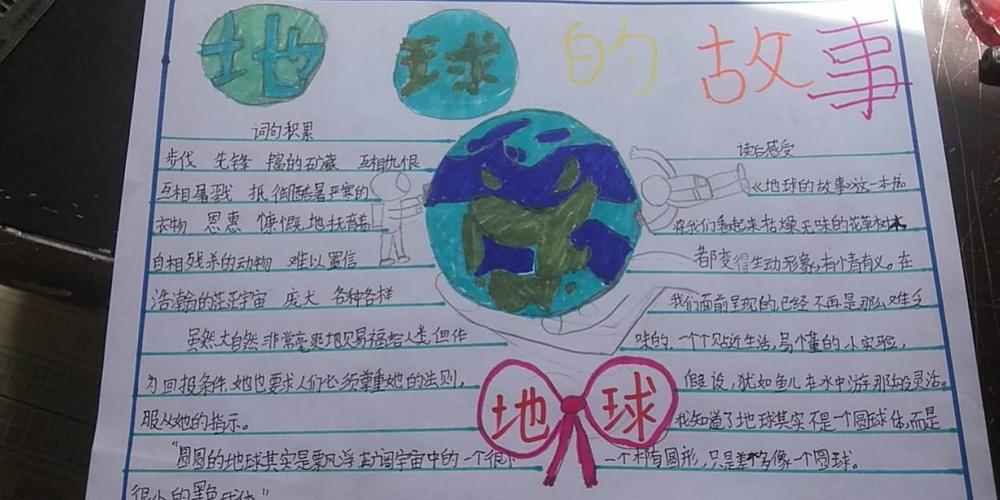 地球的故事
词句积累
步伐 先锋 富的矿藏 互相仇恨
互相屠戮 抵御酷暑严寒的
衣物 恩惠 慷慨地抚育着
自相残杀的动物 难以置信
浩瀚的茫茫宇宙 庞大 各种各样
虽然大自然非常豪爽地赐福给人类,但作
为回报条件,她也要求人们必须尊重她的法则,
服从她的指示。
"圆圆的地球其实是飘浮在广阔宇宙中的一个很小
很小的黑色球体"
读后感受
《地球的故事》这一本书
将我们看起来枯燥无味的花草树木
都变得生动形象,有声有义。在
我们面前呈现的,已经不再是那么难乏
味的,一个个贴近生活,易懂的小实验,
假设,犹如鱼儿在水中游那般灵活。
我知道了地球其实不是一个圆球体,而是
一个椭圆形,只是差不多像一个圆球。
地球